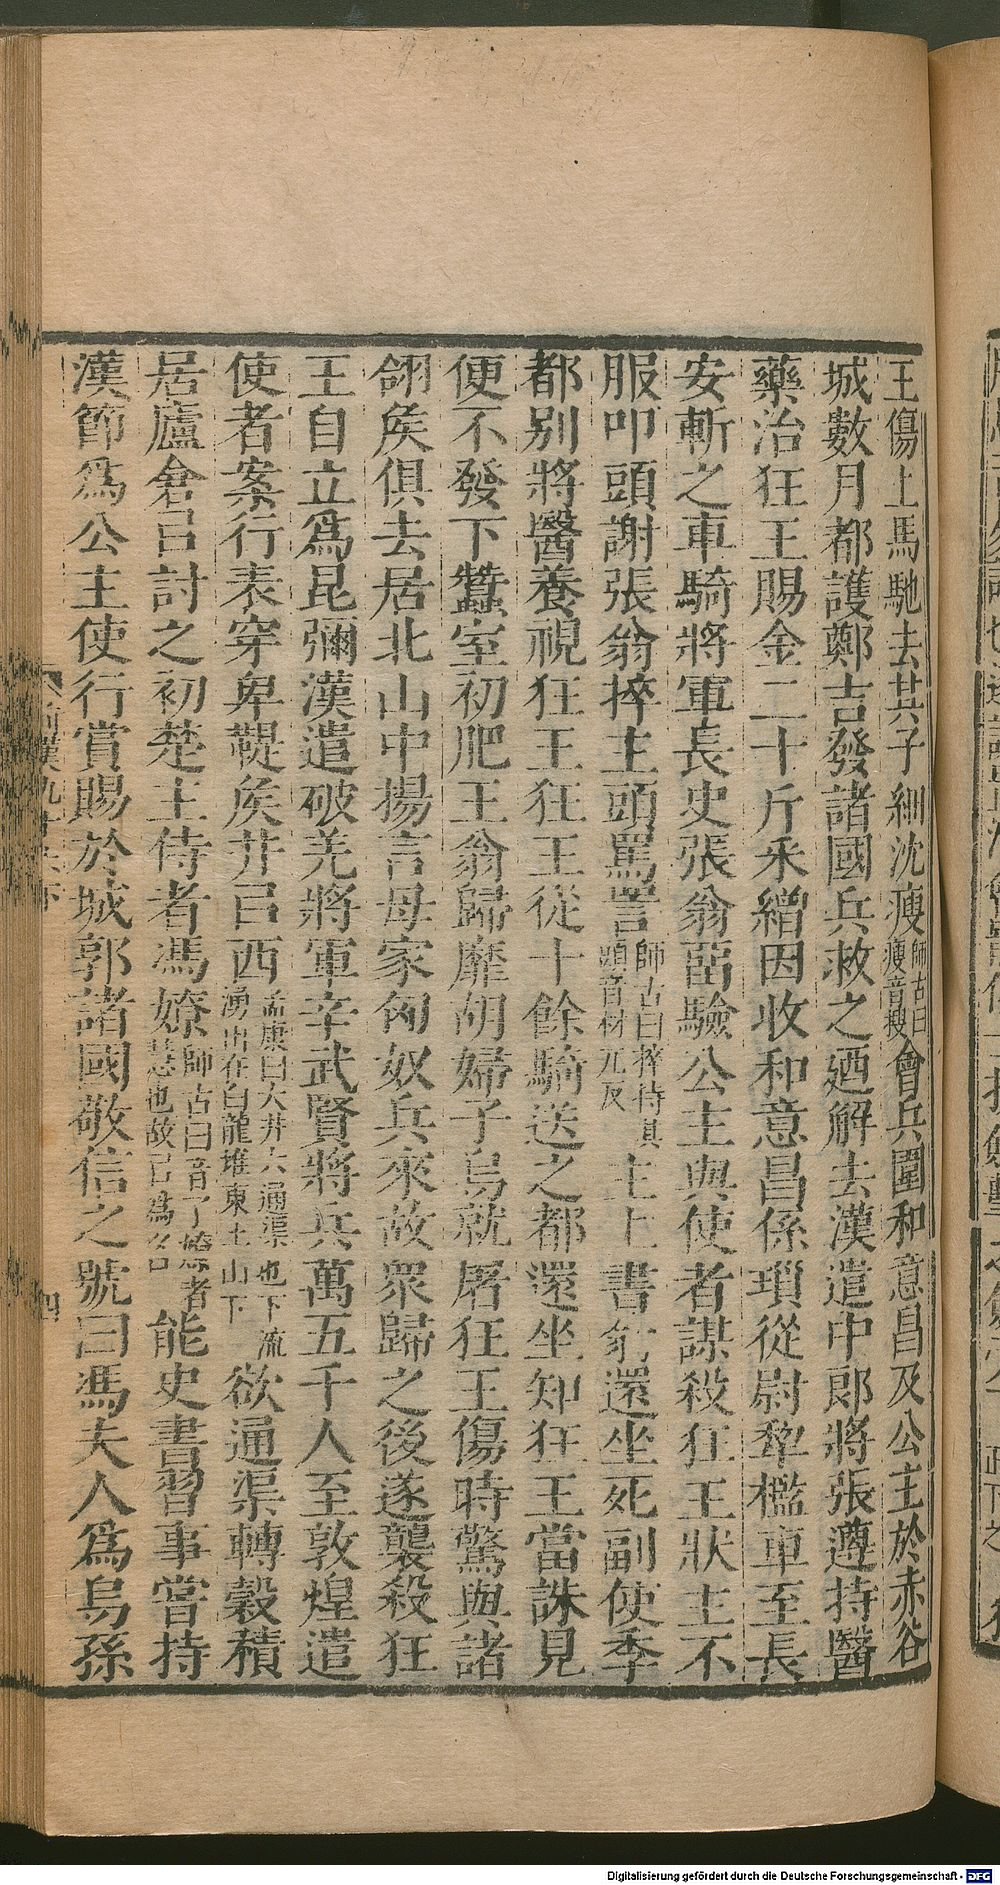 王傷上馬馳去其子細沈瘦師古曰瘦音搜會兵圍和意昌及公主於赤谷
城數月都護鄭吉發諸國兵救之廼解去漢遣中郎將張遵持醫
藥治狂王賜金二十斤采繒因收和意昌係瑣從尉犂檻車至長
安斬之車騎將軍長史張翁畱驗公主與使者謀殺狂王狀主不
服叩頭謝張翁捽主頭罵詈師古曰捽持其頭音材兀反主上書翁還坐死副使季
都別將醫養視狂王狂王從十餘騎送之都還坐知狂王當誅見
便不發下蠶室初肥王翁歸靡胡婦子烏就屠狂王傷時驚與諸
翎矦俱去居北山中揚言母家匈奴兵來故衆歸之後遂襲殺狂
王自立爲昆彌漢遣破羌將軍辛武賢將兵萬五千人至敦煌遣
使者案行表穿卑鞮矦井㠯西孟康曰大井六通渠也下流湧出在白龍堆東土山下欲通渠轉穀積
居廬倉㠯討之初楚主侍者馮嫽師古曰音了嫽者慧也故㠯爲名能史書習事嘗持
漢節爲公主使行賞賜於城郭諸國敬信之號曰馮夫人爲烏孫
四
Digitalisierung gefördert durch die Deutsche Forschungsgemeinschaft - DFG